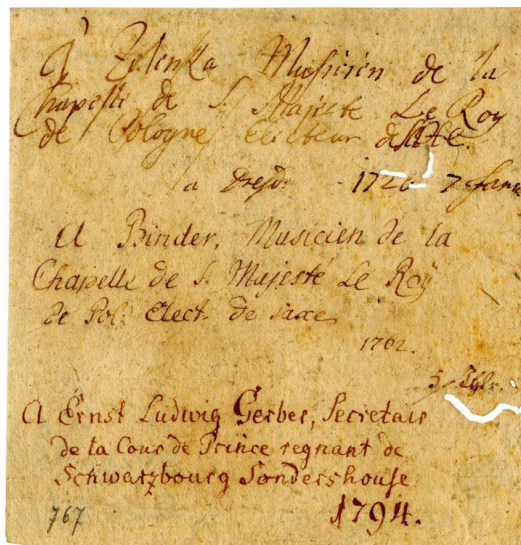 à Zelenka Musicien de la
Chapelle de S. Majesté Le Roy
de Pologne Electeur de
a Dresd: 1726 7 Janv
A Binder, Musicien de la
Chapelle de S. Majesté Le Roÿ
de Pol: Elect. de saxe
1762.
5 Thlr.
A Ernst Ludwig Gerber, Secretair
de la Cour de Prince regnant de
Schwarzbourg Sondershouse
1794.
767